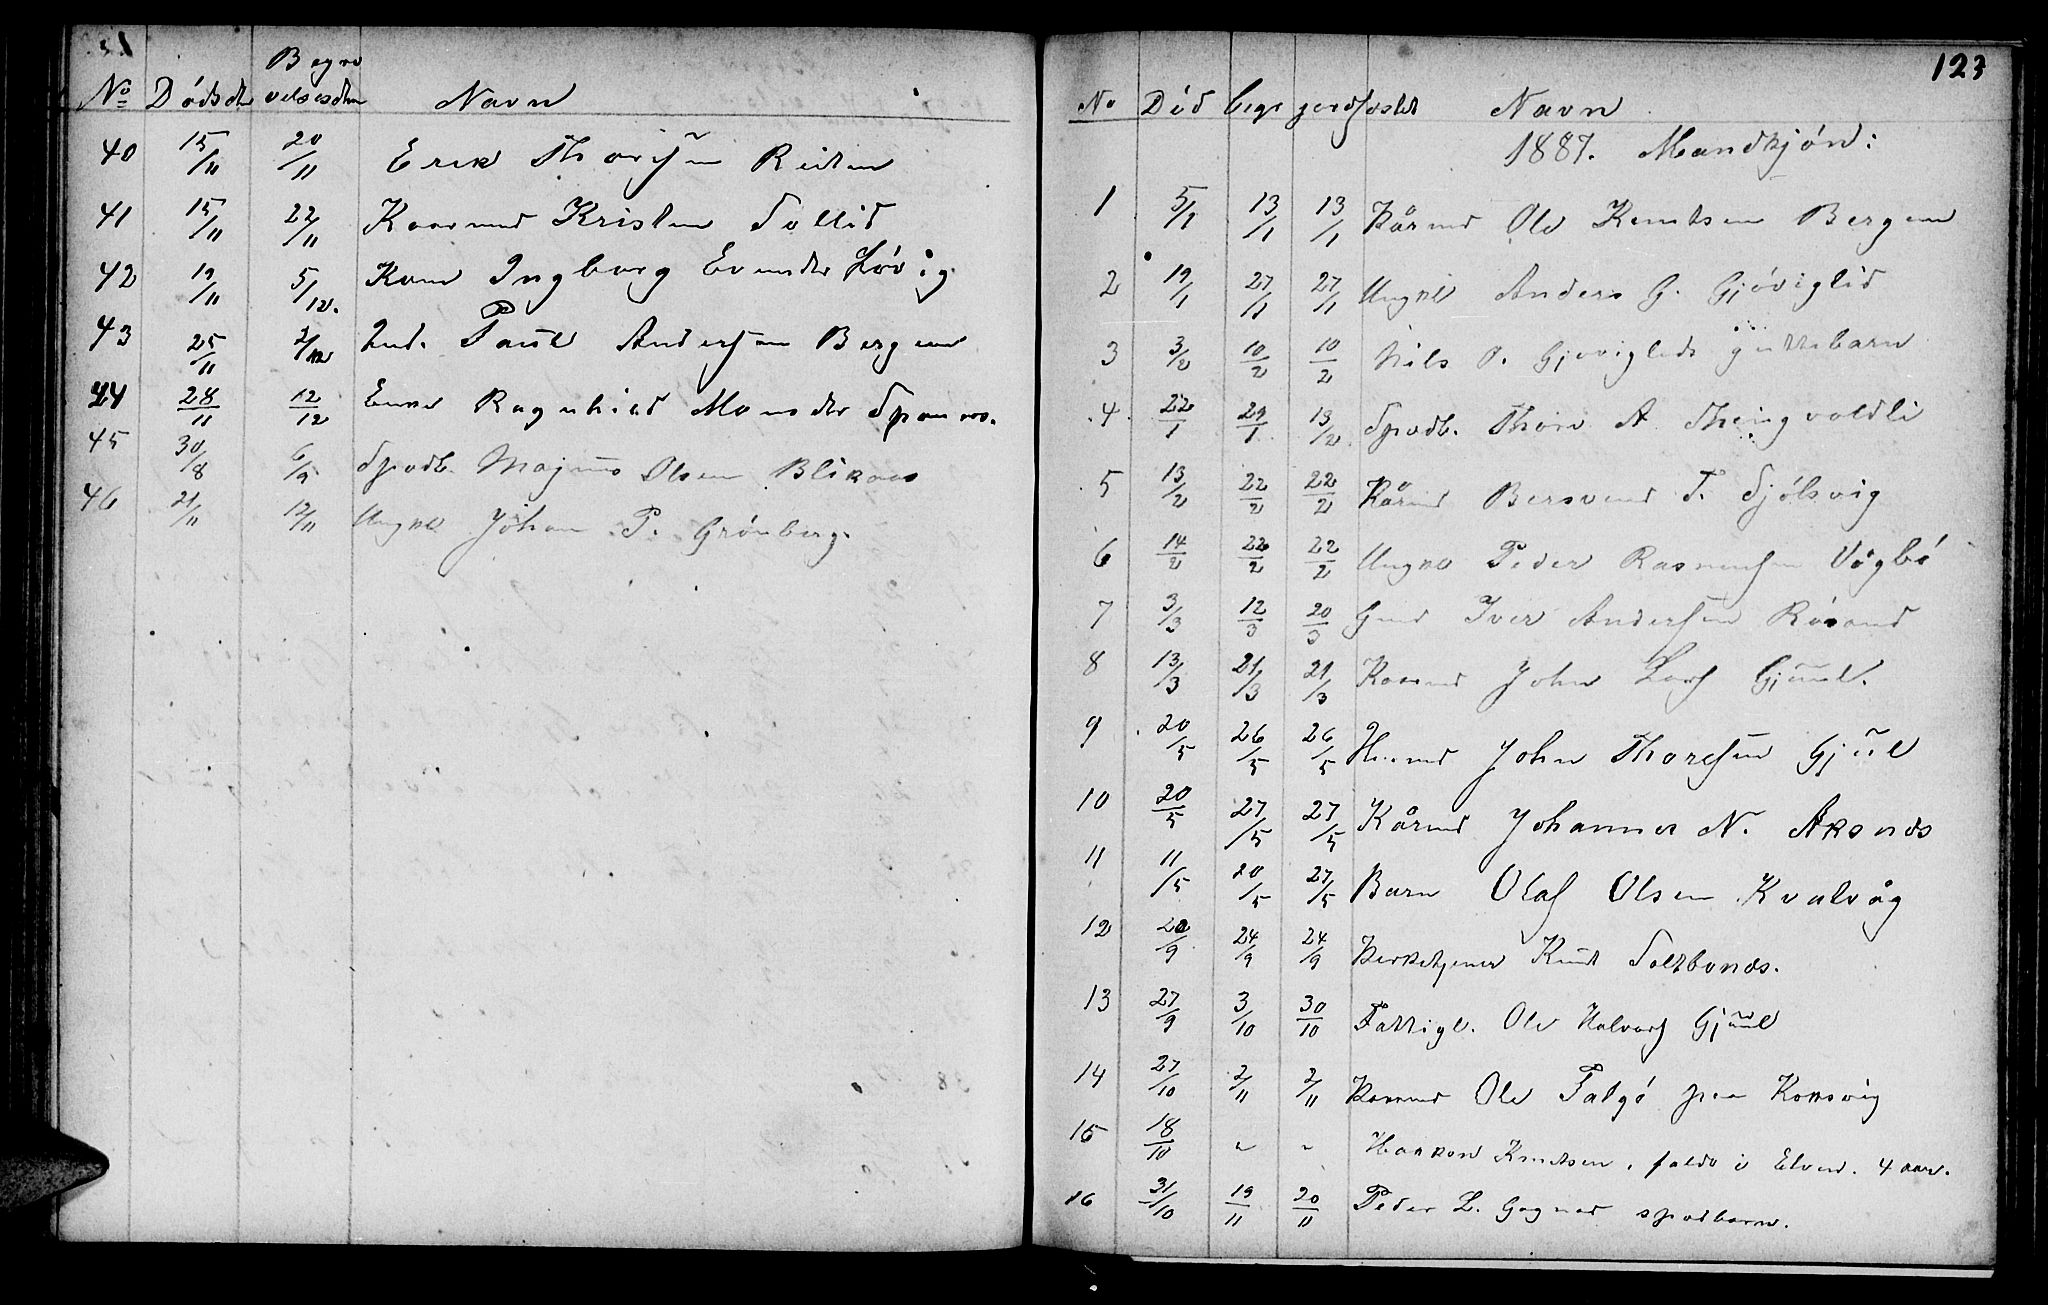 Begra
No Dødsdn velsesdn Navn
40 15/11 20/11 Erik Thoresen Reiten
41 15/11 22/11 Kaarmd Kristen Sollid
42 19/11 5/12. Kone Ingborg Evensdtr Løvig
43 25/11 2/12 Ind. Paul Andersen Bergem
44 28/11 12/12 Enke Ragnhild Monsdtr
45 30/8 6/9 Spædb. Magnus Olsen Blikaas
46 21/11 12/11 Ungkl Johan P. Grønberg.
123
No Død begr jordfæstet Navn
1887. Mandkjøn:
1 5/1 13/1 13/1 Kårmd Ole Knutsen Bergem
2 19/1 27/1 27/1 Ungkl Anders G. Gjøviglid
3 3/2 10/2 10/2 Nils O. Gjøviglids guttebarn
4 22/1 29/1 13/2 Spædb. Thore A. Thingvoldli
5 13/2 22/2 22/2 Kårmd Bersvend T. Sjølsvig
6 14/2 22/2 22/2 Ungkl Peder Rasmusen Vågbø
7 3/3 12/3 20/3 Gmd Iver Andersen Røsand
8 13/3 21/3 21/3 Kaarmd John Lars Gjul.
9 20/5 26/5 26/5 John Thoresen Gjul
10 20/5 27/5 27/5 Kårmd Johannes N. Aksnes
11 11/5 20/5 27/5 Barn Olaf Olsen Kvalvåg
12 20/9 24/9 24/9 Kirketjener Knut
13 27/9 3/10 30/10 Fattigl. Ole Halvors Gjul
14 27/10 2/11 2/11 Kaarmd Ole Talgø paa Korsvig
15 18/10 - - Haakon Knutsen, faldt i Elven. 4 aar.
16 31/10 19/11 20/11 Peder L. Gagnat spædbarn.